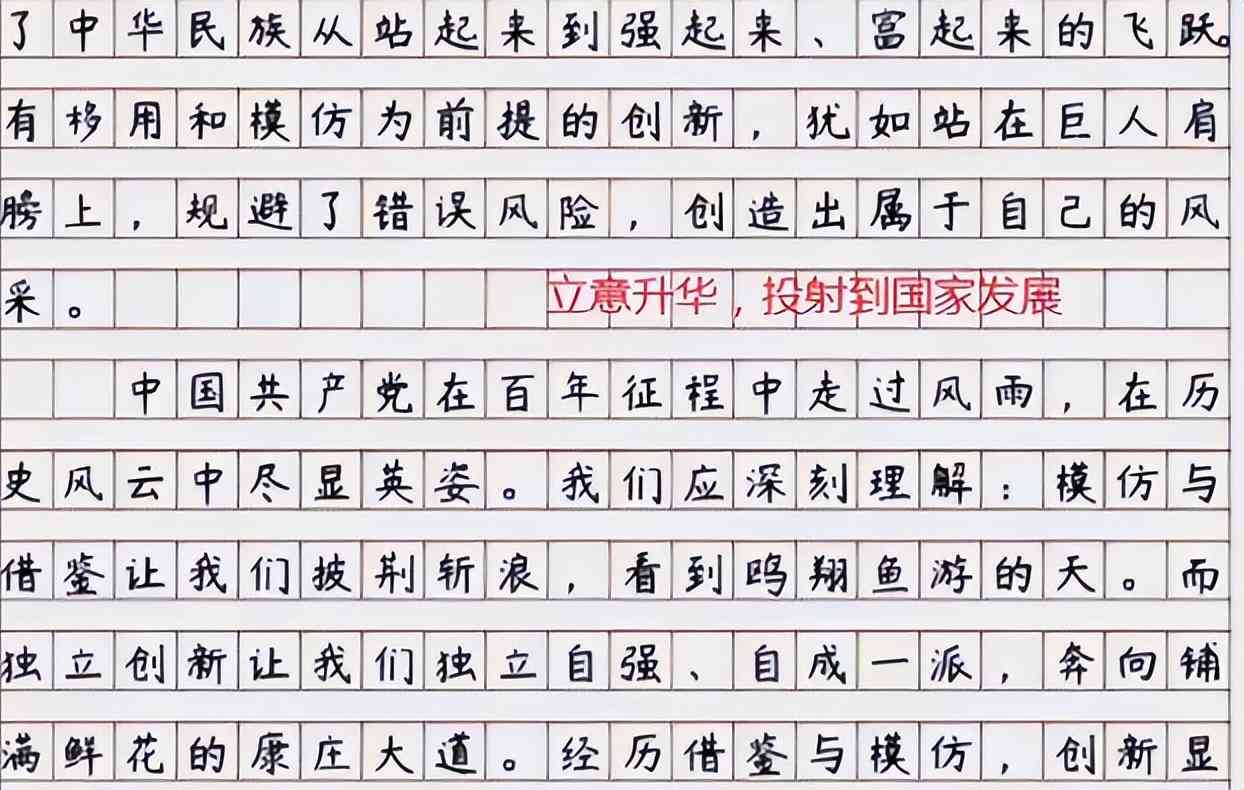 了中华民族从站起来到强起来、富起来的飞跃。
有移用和模仿为前提的创新，犹如站在巨人肩
膀上，规避了错误风险，创造出属于自己的风
采。
立意升华，投射到国家发展
中国共产党在百年征程中走过风雨，在历
史风云中尽显英姿。我们应深刻理解：模仿与
借鉴让我们披荆斩浪，看到鸥翔鱼游的天。而
独立创新让我们独立自强、自成一派，奔向铺
满鲜花的康庄大道。经历借鉴与模仿，创新显